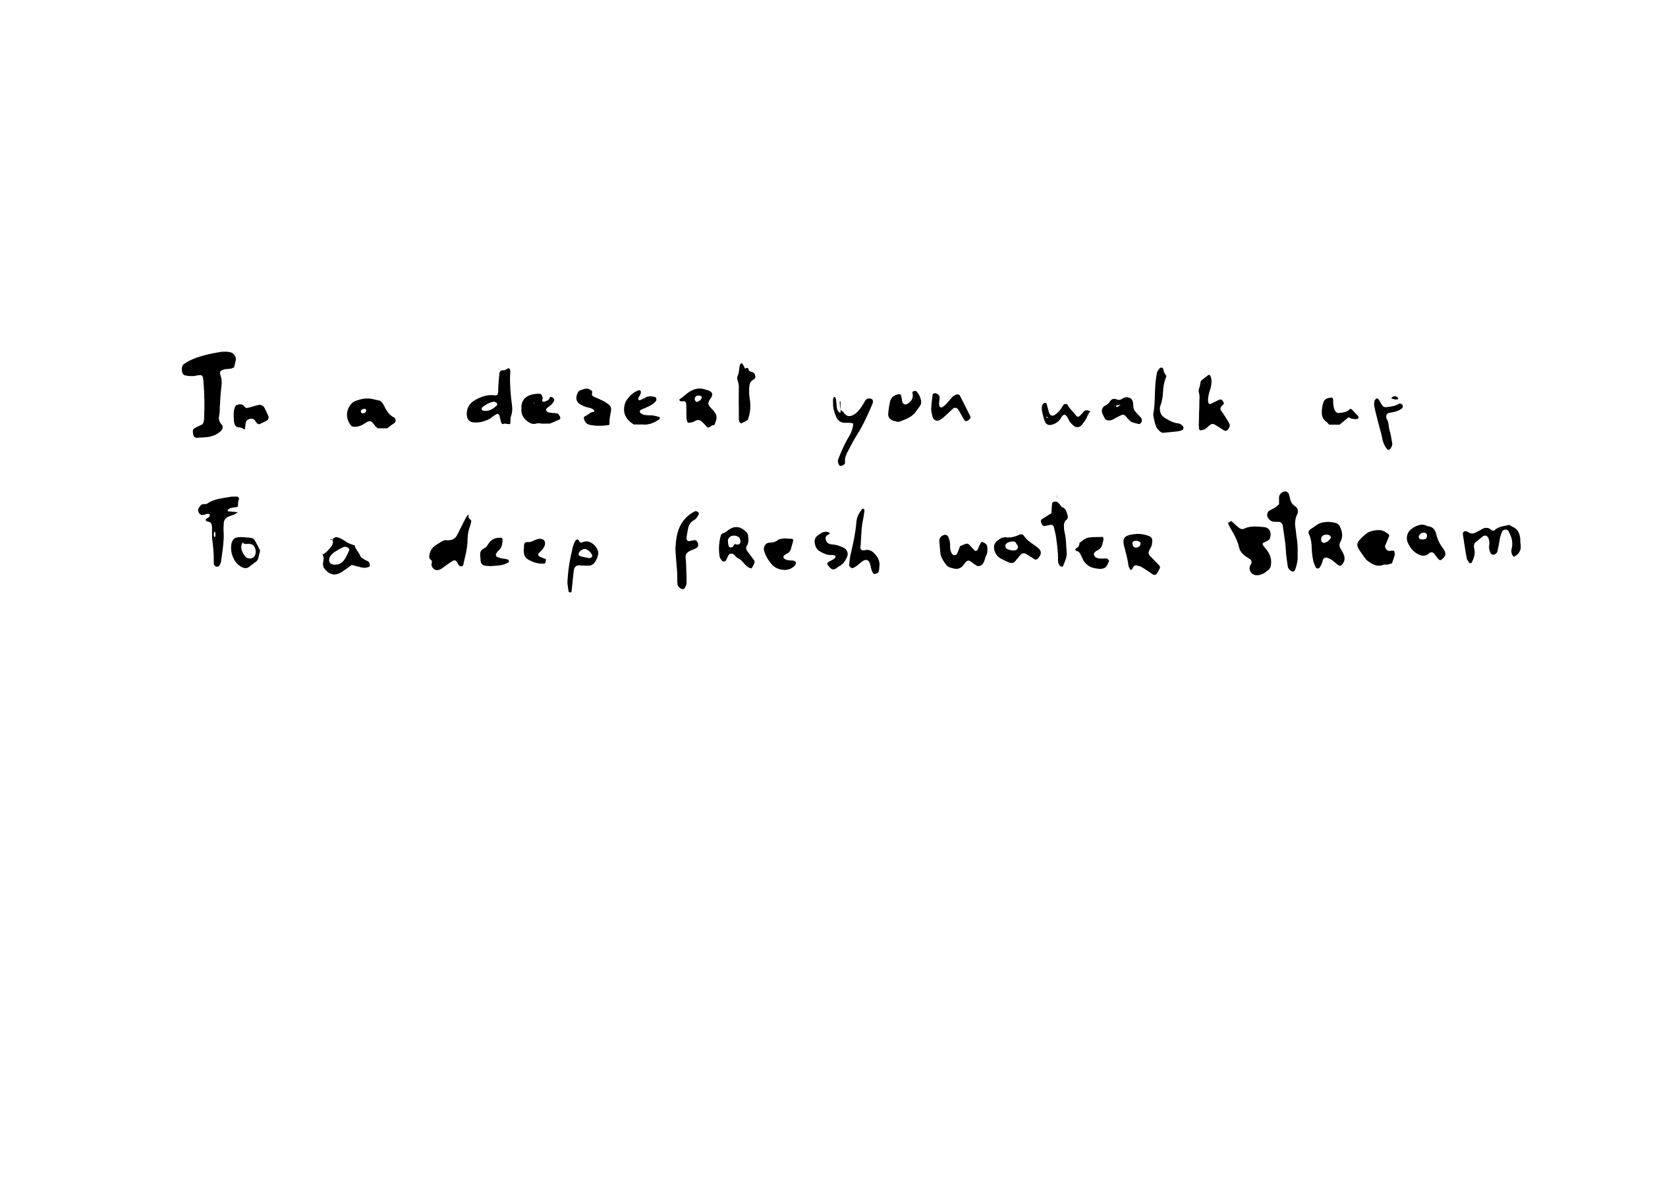 In a desert you walk up
To a deep fresh water stream